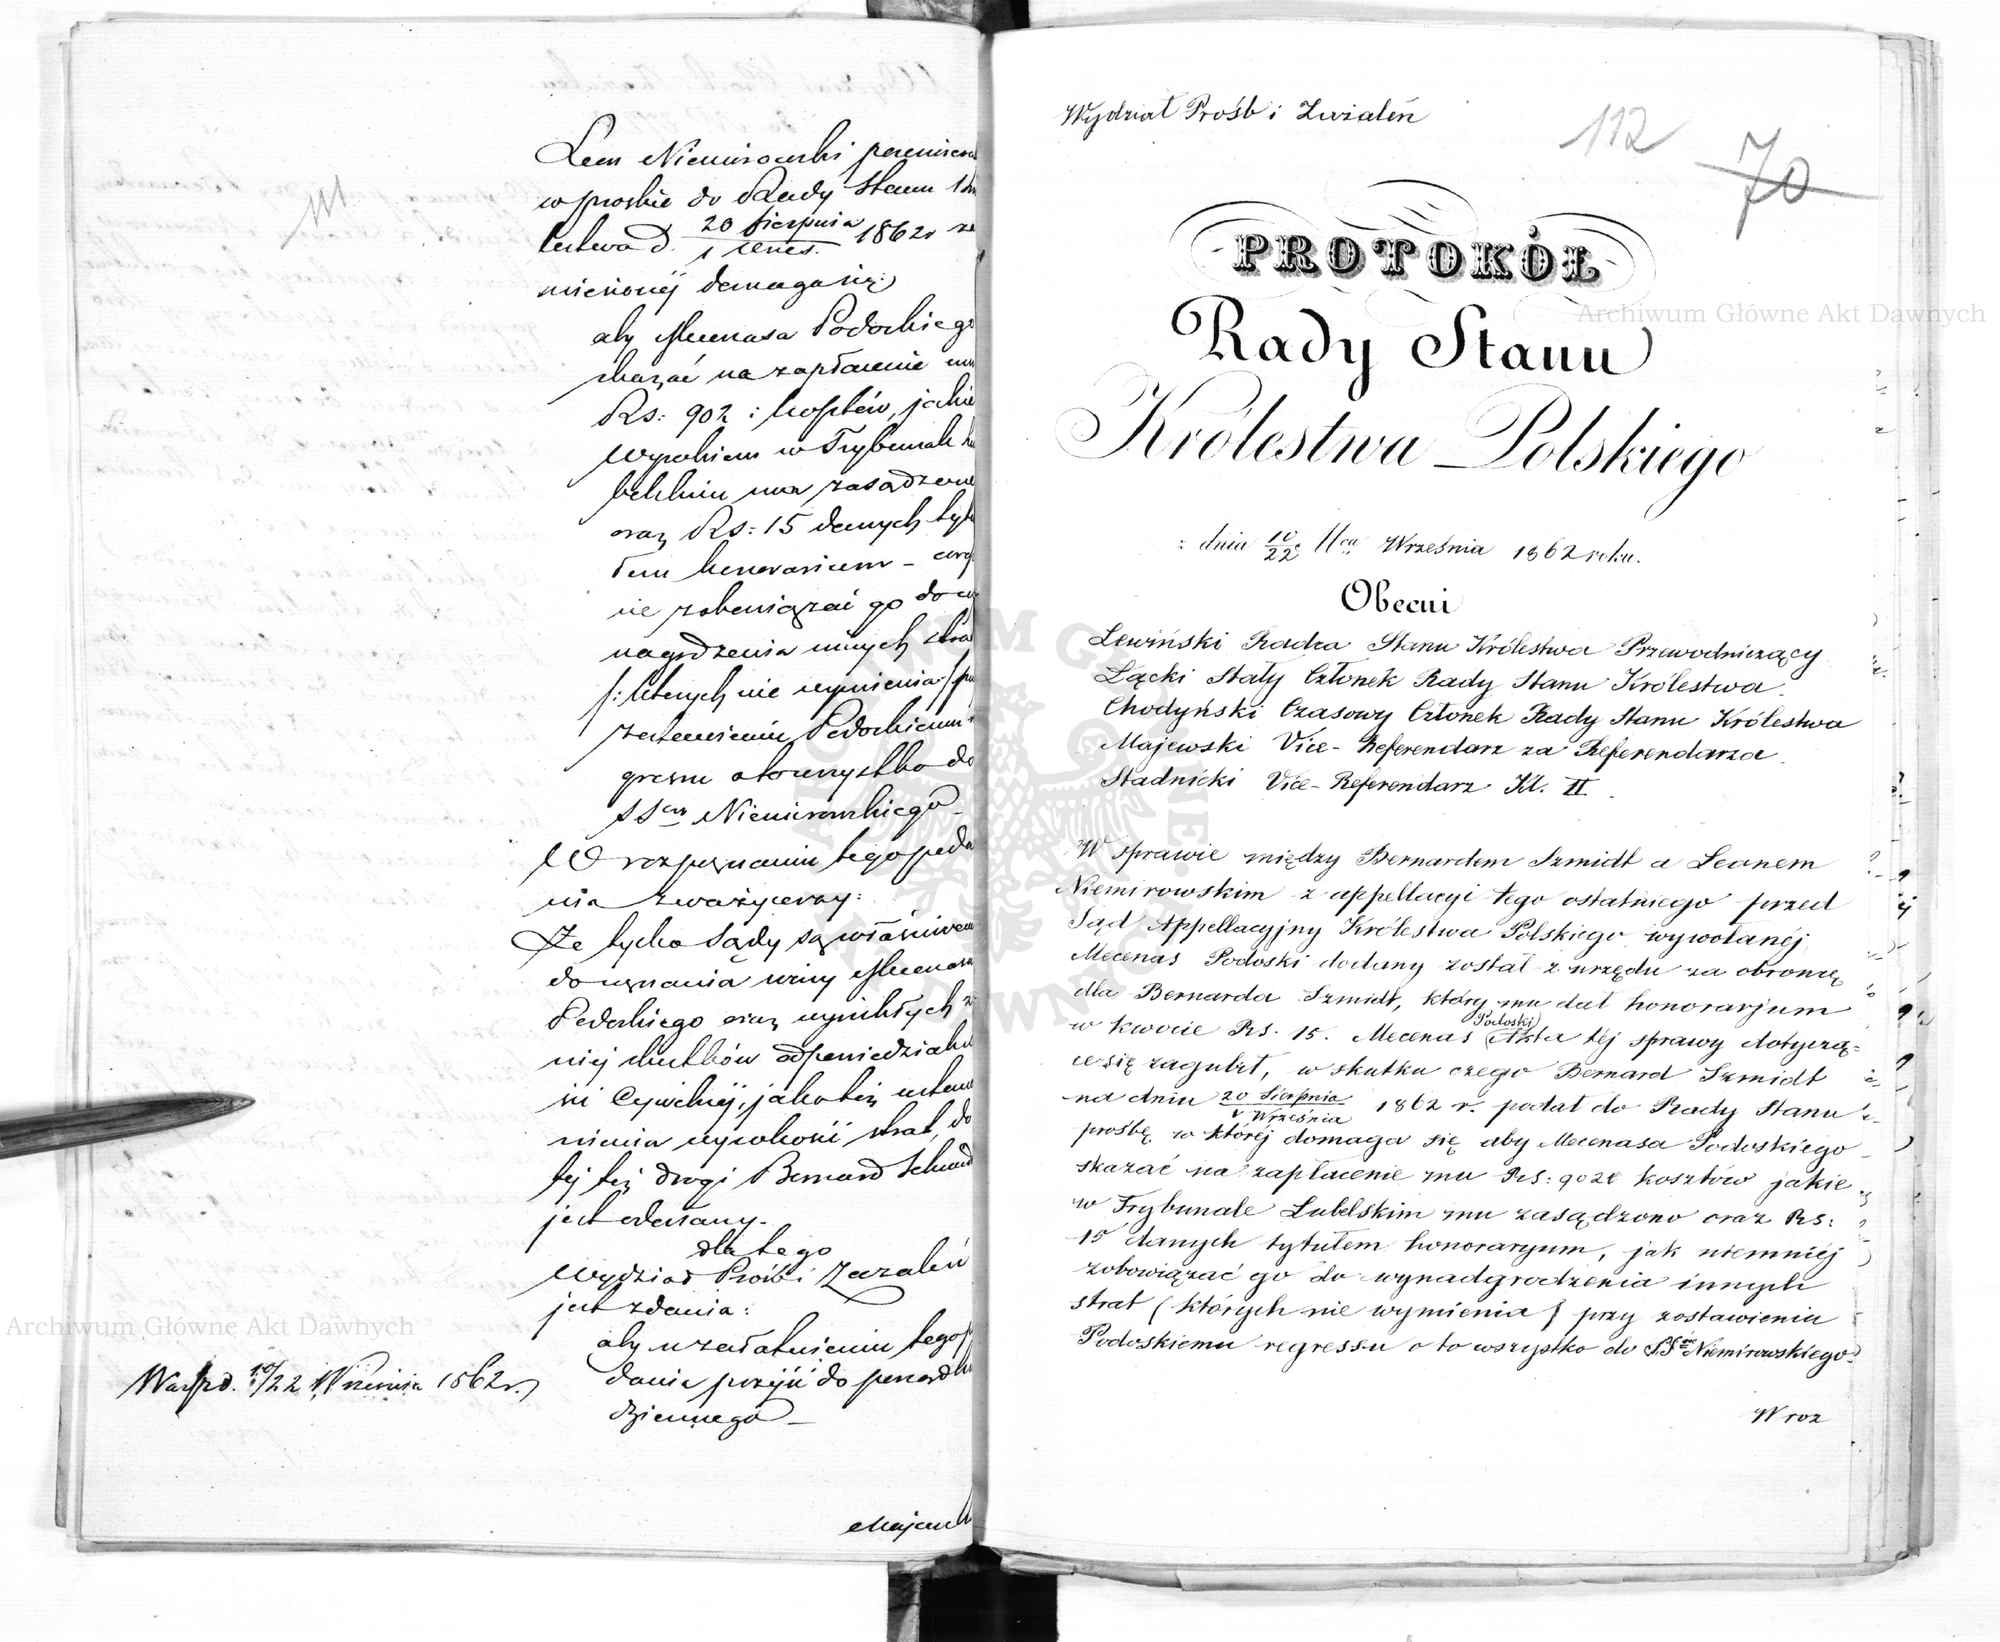 Leon Niemirowski
w prośbie do Rady Stanu
lestwa d. 20 Sierpnia 1862 r
1 Wrześ.
mienionéj domaga się
aby Mecenasa Podoskiego
skazać na zapłacenie mu
Rs: 902 : kosztów, jakie
Wyrokiem w Trybunale
belskim ma zasądzone
oraz Rs: 15 danych tytu
łem honorarium –
nie zobowiązać go do wy
nagrodzenia innych strat
/: których nie wymienia :/
zostawieniu Podoskiemu
gressu o to wszystko do
SSrów Niemirowskiego –
W rozpoznaniu tego poda
nia zważywszy:
Że tylko Sądy są właściwe
do uznania winy Mecenasa
Podoskiego oraz wynikłych z
niéj skutków odpowiedzialno
ści Cywilnéj, jako też ustano
wienia wysokości strat, do
téj też drogi Bernard
jest odesłany.
dla tego
Wydział Próśb i Zażaleń
jest zdania:
aby w załatwieniu tego po
dania przejść do porządku
dziennego –
Warsz. d. 10/22 Września 1862 r.
Majewski
Wydział Prośb i Zażaleń
112
70
PROTOKÓŁ
Rady Stanu
Królestwa Polskiego
: dnia 10/22 Września 1862 roku.
Obecni
Lewiński Radca Stanu Królestwa Przewodniczący
Łącki Stały Członek Rady Stanu Królestwa.
Chodyński Czasowy Członek Rady Stanu Królestwa
Majewski Vice-Referendarz za Referendarza.
Stadnicki Vice-Referendarz Kl. II.
W sprawie między Bernardem Szmidt a Leonem
Niemirowskim z appellacyi tego ostatniego przed
Sąd Appellacyjny Królestwa Polskiego wywołanéj,
Mecenas Podoski dodany został z urzędu za obrońcę
dla Bernarda Szmidt, który mu dał honorarjum
w kwocie Rs. 15. Mecenas Podoski Akta téj sprawy dotyczą=
ce się zagubił, w skutku czego Bernard Szmidt
na dniu 20 Sierpnia 1862 r. podał do Rady Stanu
1 Września
prośbę w któréj domaga się aby Mecenasa Podoskiego
skazać na zapłacenie mu Rs: 902 kosztów jakie
w Trybunale Lubelskim mu zasądzono oraz Rs:
15 danych tytułem honoraryum, jak niemniéj
zobowiązać go do wynadgrodzenia innych
strat ( których nie wymienia ) przy zostawieniu
Podoskiemu regressu o to wszystko do SSrów Niemirowskiego.
W roz
Archiwum Główne Akt Dawnych
Archiwum Główne Akt Dawnych